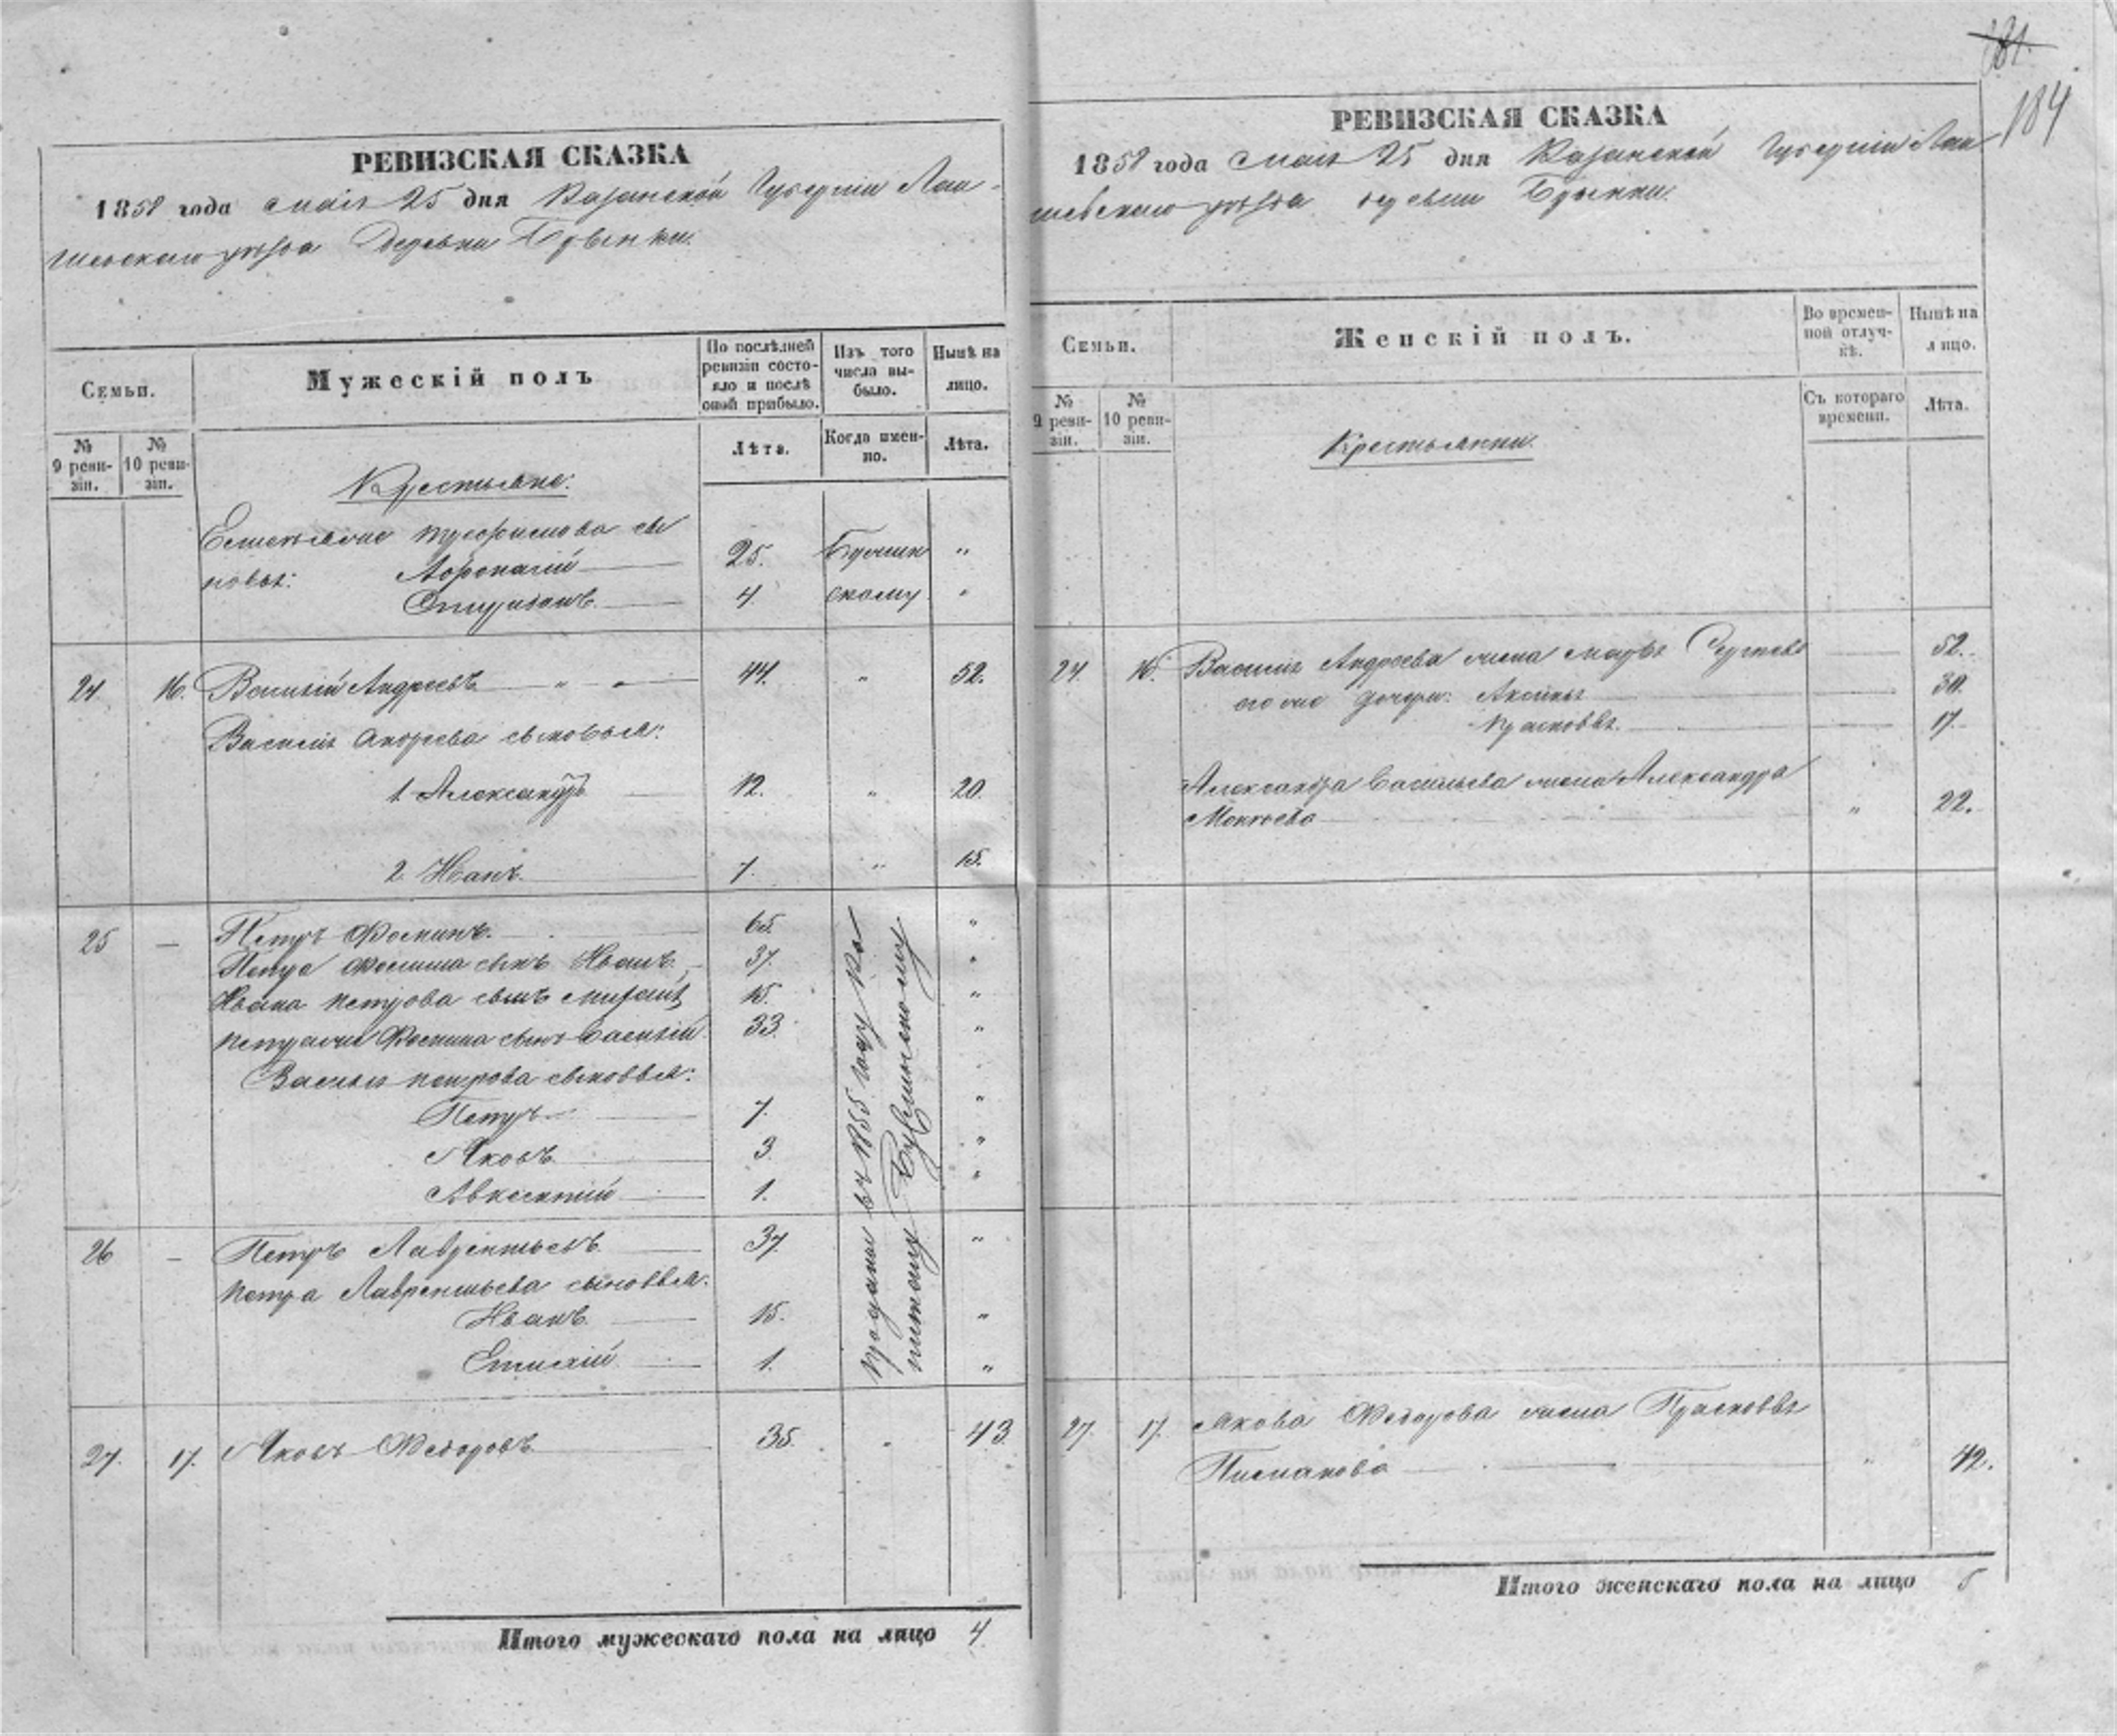 181.
184
РЕВИЗСКАЯ СКАЗКА
1858 года Маія 25 дня Казанской Губерніи Лаи-
шевскаго уѣзда Деревни
Семьи.
Мужескій полъ
По послѣдней ревизіи состояло и послѣ оной прибыло.
Изъ того числа выбыло.
Нынѣ на лицо.
№ 9 ревизіи.
№ 10 ревизіи.
Лѣта.
Когда именно.
Лѣта.
Крестьяне:
сы
новья: Афонасій 25. "
4. скому "
24. 16. Василій Андреевъ " 44. " 52.
Василья Андреева сыновья:
1. Александръ 12. " 20.
2. Иванъ 7. " 15.
25 — Петръ Фоминъ. 65. "
Петра Фомина сынъ Иванъ. 37. "
Ивана Петрова сынъ 15. "
Петра Фомина сынъ Василій 33. "
Василья Петрова сыновья:
Петръ 7. "
Яковъ 3. "
Авксентій 1. "
26 — Петръ Лаврентьевъ 37. "
Петра Лаврентьева сыновья:
Иванъ 15. "
1. "
Проданы въ 1855 году
27. 17. Яковъ Федоровъ 35. " 43.
Итого мужескаго пола на лицо 4
РЕВИЗСКАЯ СКАЗКА
1858 года Маія 25 дня Казанской Губерніи Лаи
шевскаго уѣзда деревни
Семьи.
Женскій полъ.
Во временной отлучкѣ.
Нынѣ на лицо.
№ 9 ревизіи.
№ 10 ревизіи.
Съ котораго времени.
Лѣта.
Крестьянки
24. 16. Василья Андреева жена Марья 52.
его же дочери: Аксинья 30.
Прасковья 17.
Александра Васильева жена Александра
" 22.
27. 17. Якова Федорова жена Прасковья
" 42.
Итого женскаго пола на лицо 5